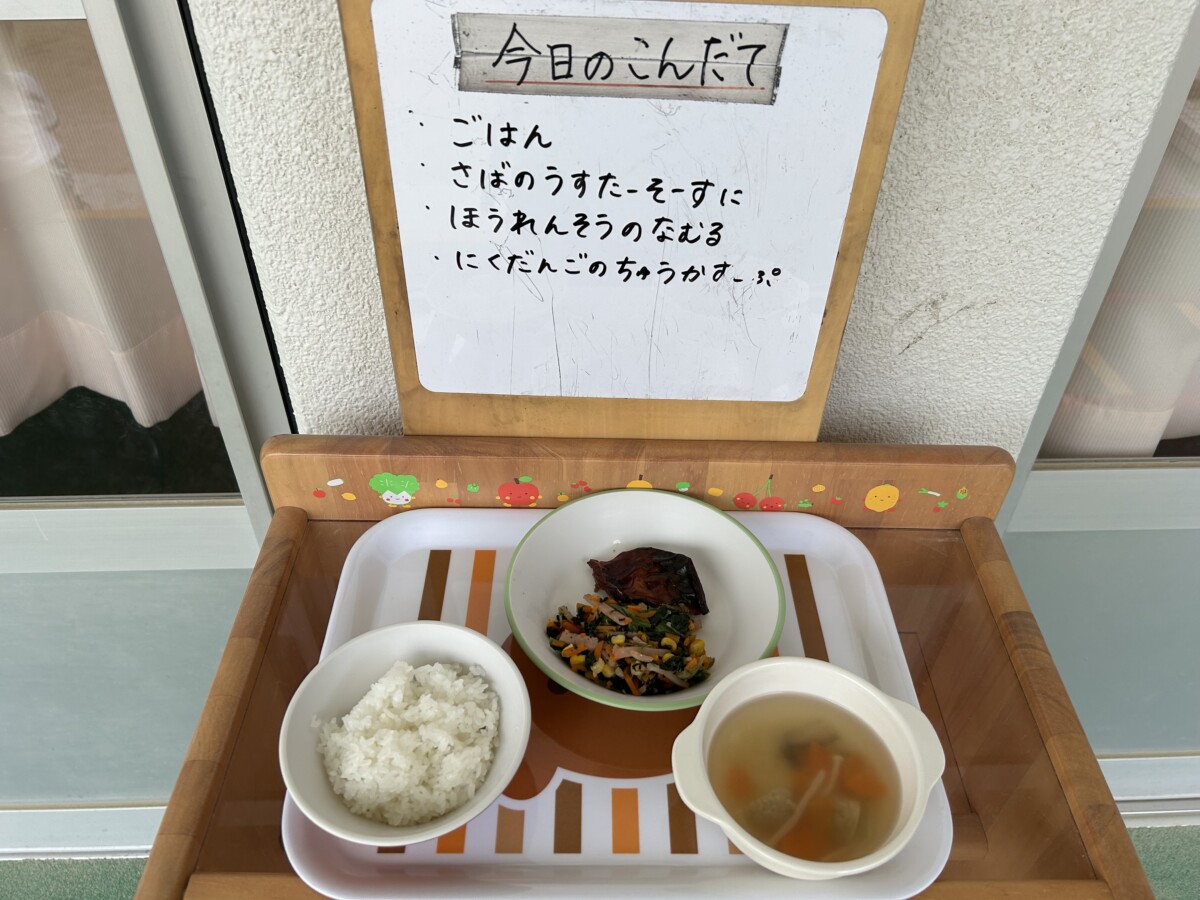 今日のこんだて
・ごはん
・さばのうすたーそーすに
・ほうれんそうのなむる
・にくだんごのちゅうかすーぷ